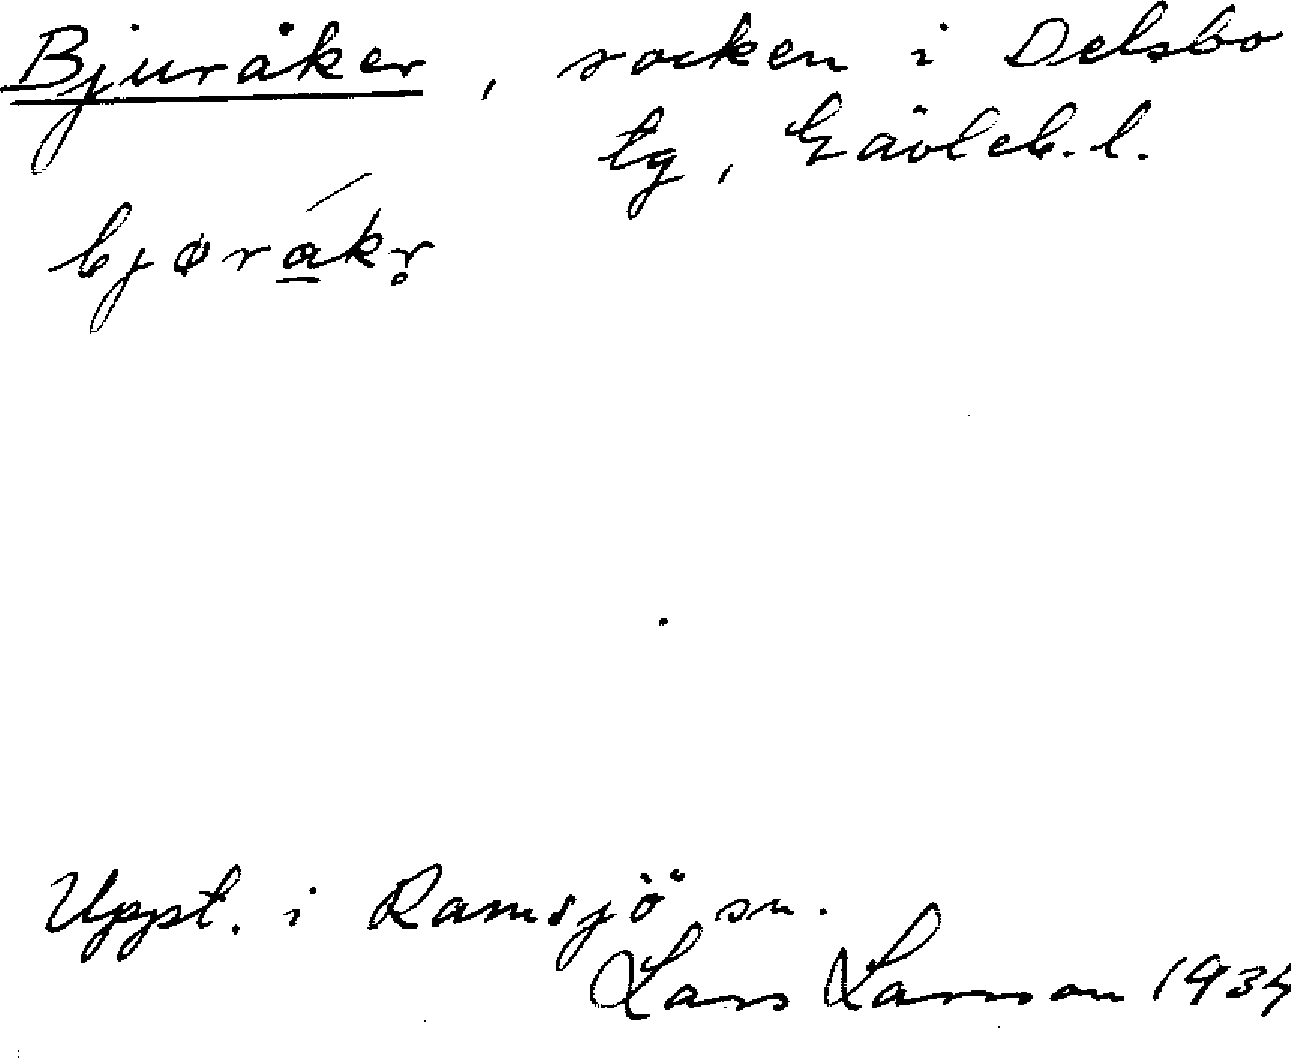 Bjuråker, socken i Delsbo
tg, Gävleb. l.
bjøråkr̥
Uppt. i Ramsjö sn.
Lars Larsson 1934